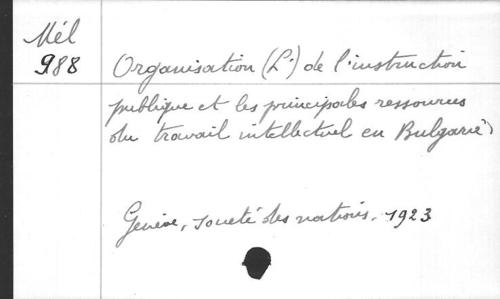 Mél
988
Organisation (L') de l'instruction
publique et les principales ressources
du travail intellectuel en Bulgarie
Genève, Société des nations, 1923